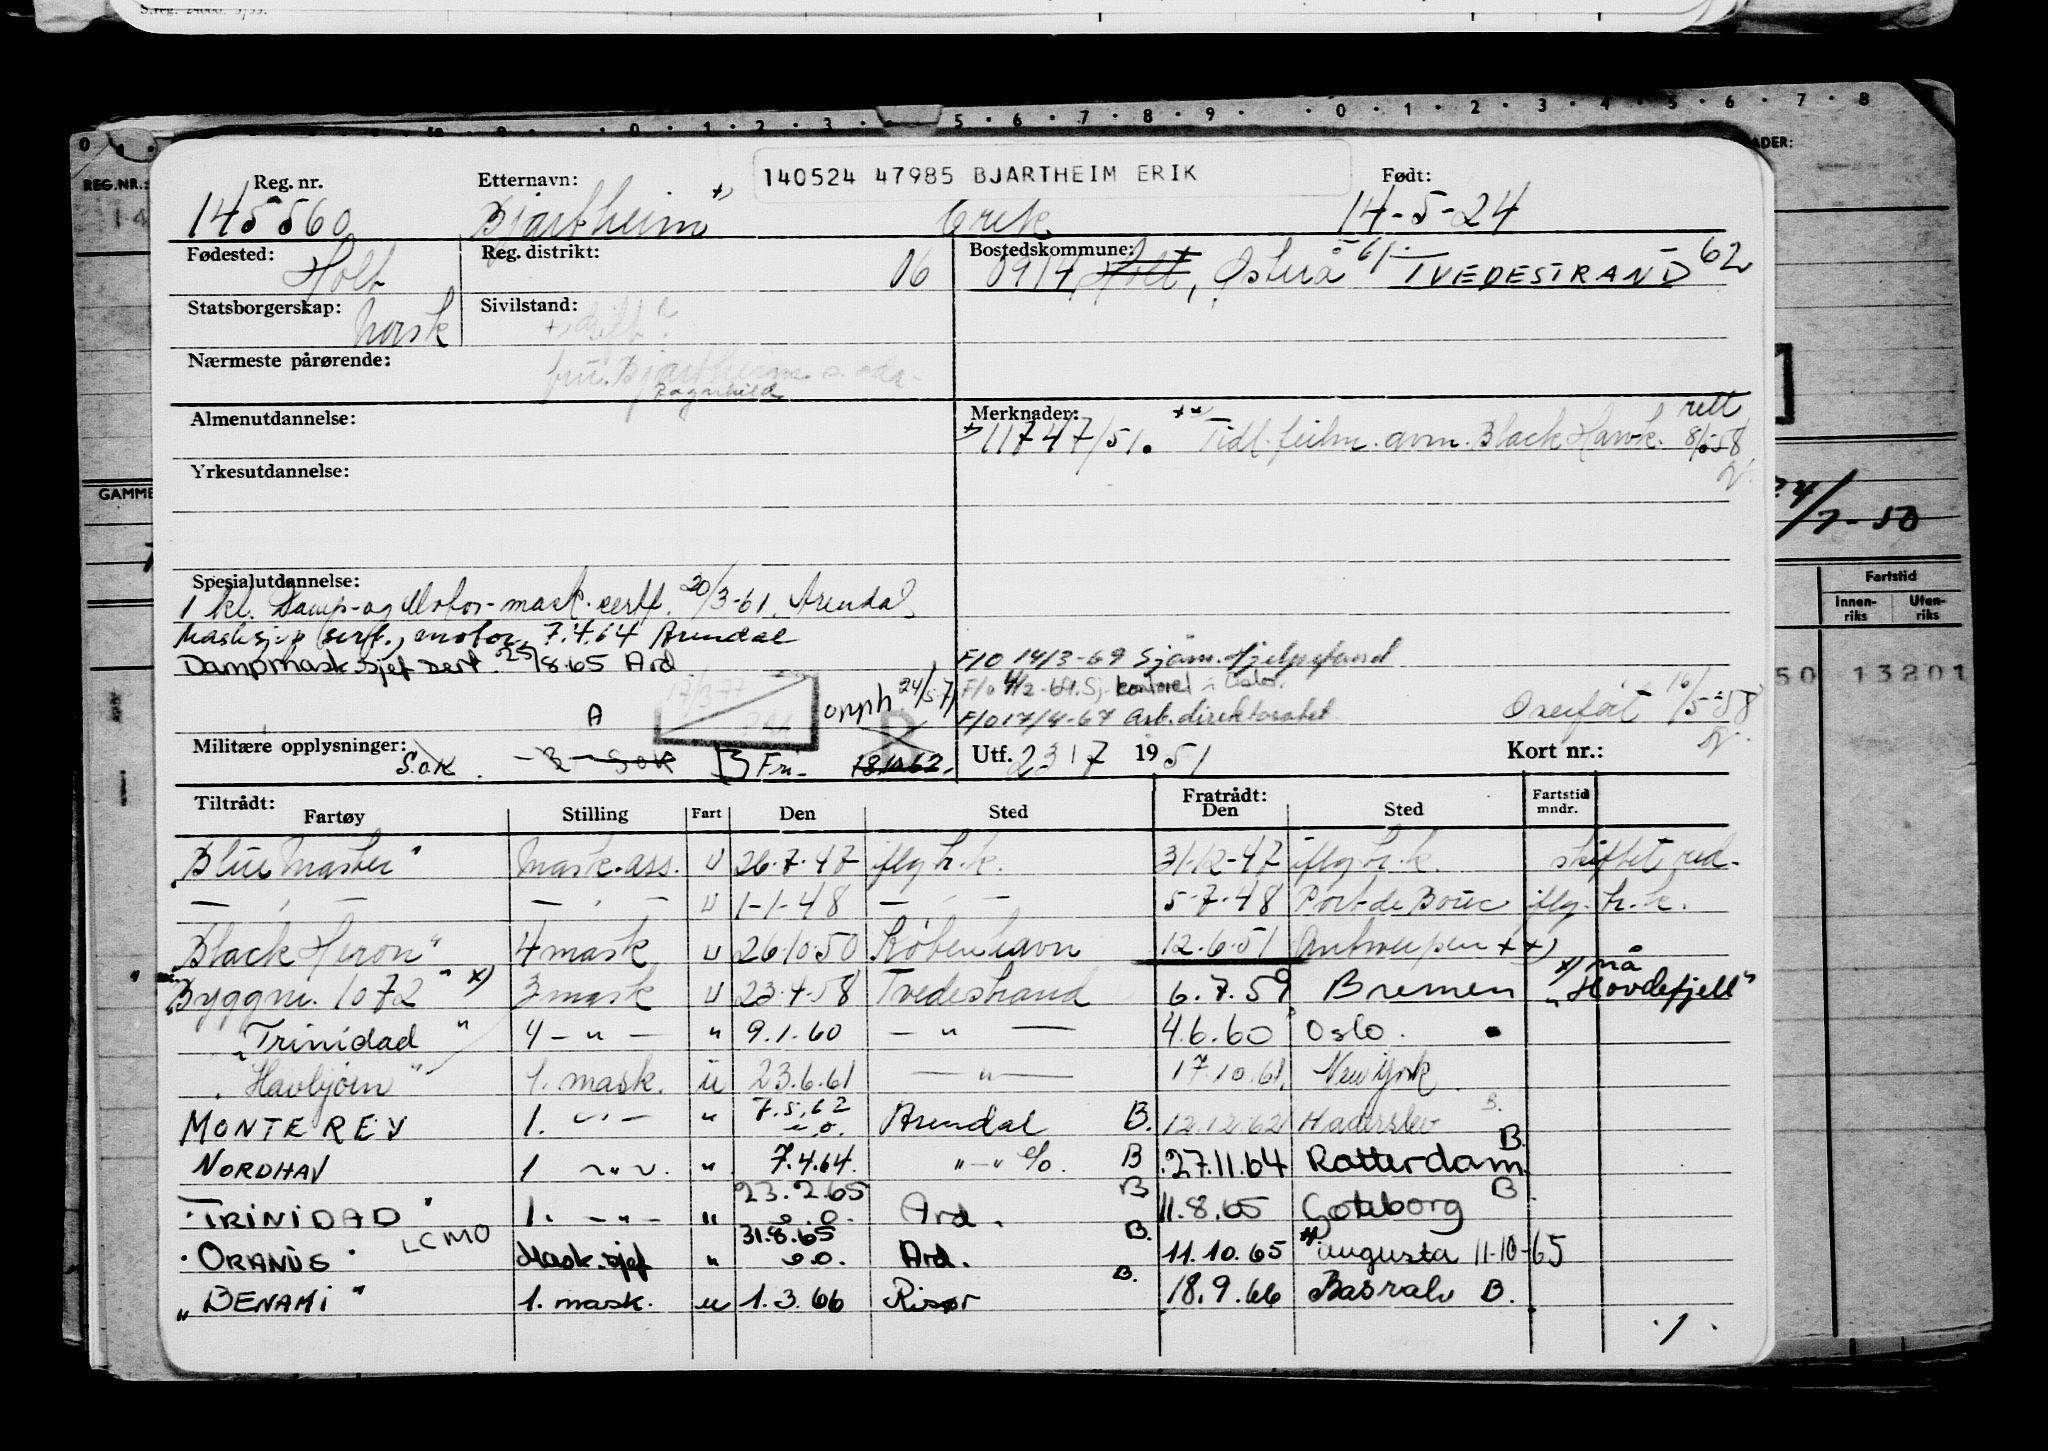 REG.NR.:
Reg. nr. Etternavn: 140524 47985 BJARTHEIM ERIK Født:
145560 Bjartheim x) Erik 14-5-24
Fødested: Reg. distrikt: Bostedskommune:
Holt 06 0914 Holt, Østerå -61- TVEDESTRAND 62
Statsborgerskap: Sivilstand:
Norsk gift
Nærmeste pårørende:
fru Bjartheim s. adr.
Ragnhild
Almenutdannelse: Merknader:
x) 11747/51. xx) Tidl. feilm. avm. Black Hawk. rett 8/5-58
Yrkesutdannelse:
GAMME
24/7-50
Spesialutdannelse:
1 kl. Damp- og Motor-mask. certf. 20/3-61. Arendal
Masksjef serf., motor, 7.4.64 Arendal
Dampmask.sjef sert. 25/8.65 Ard
F/O 14/3-69 Sjøm. Hjelpefond
F/O 4/2-69. Sj. kontoret i Oslo.
F/O 17/4-67 Arb. direktoratet
17/3-77
A opph. 24/5-71
Overført 16/5-58
Militære opplysninger: S.O.K. B Fri- 18.10.62.
Utf. 23/7 1951 Kort nr.:
Tiltrådt: Fratrådt: Fartstid mndr.
Fartøy Stilling Fart Den Sted Den Sted
"Blue Master" Mask.ass. u 26.7.47 iflg. h.k. 31.12-47 iflg. h.k. skiftet red-
— " — — " — u 1-1-48 — " — 5-7-48 Port de Bouc iflg. h.k.
"Black Heron" 4 mask u 26.10.50 København 12.6.51 Antwerpen xx)
"Byggnr. 1072" x) 3 mask u 23.4.58 Tvedestrand 6.7.59 Bremen x) nå "Hovdefjell"
"Trinidad" 4 — " — " 9.1.60 — " — 4.6.60 Oslo.
"Havbjørn" 1. mask. u 23.6.61 — " — 17.10.61. New York
MONTEREY 1. — " — " 7.5.62 e.o. Arendal B. 12.12.62 Haderslev B.
NORDHAV 1 — " — " 7.4.64. " — " e/o. B 27.11.64 Rotterdam B.
"TRINIDAD" 1. — " — " 23.2.65 e.o. Ard. B 11.8.65 Gøteborg B
"ORANUS" LCMO Mask.sjef " 31.8.65 e.o. Ard. B. 11.10.65 Augusta 11-10-65
"BENAMI" 1. mask. u 1.3.66 Risør B. 18.9.66 Basrah B.
Fartstid
Innen-riks Uten-riks
50 13201
.1.